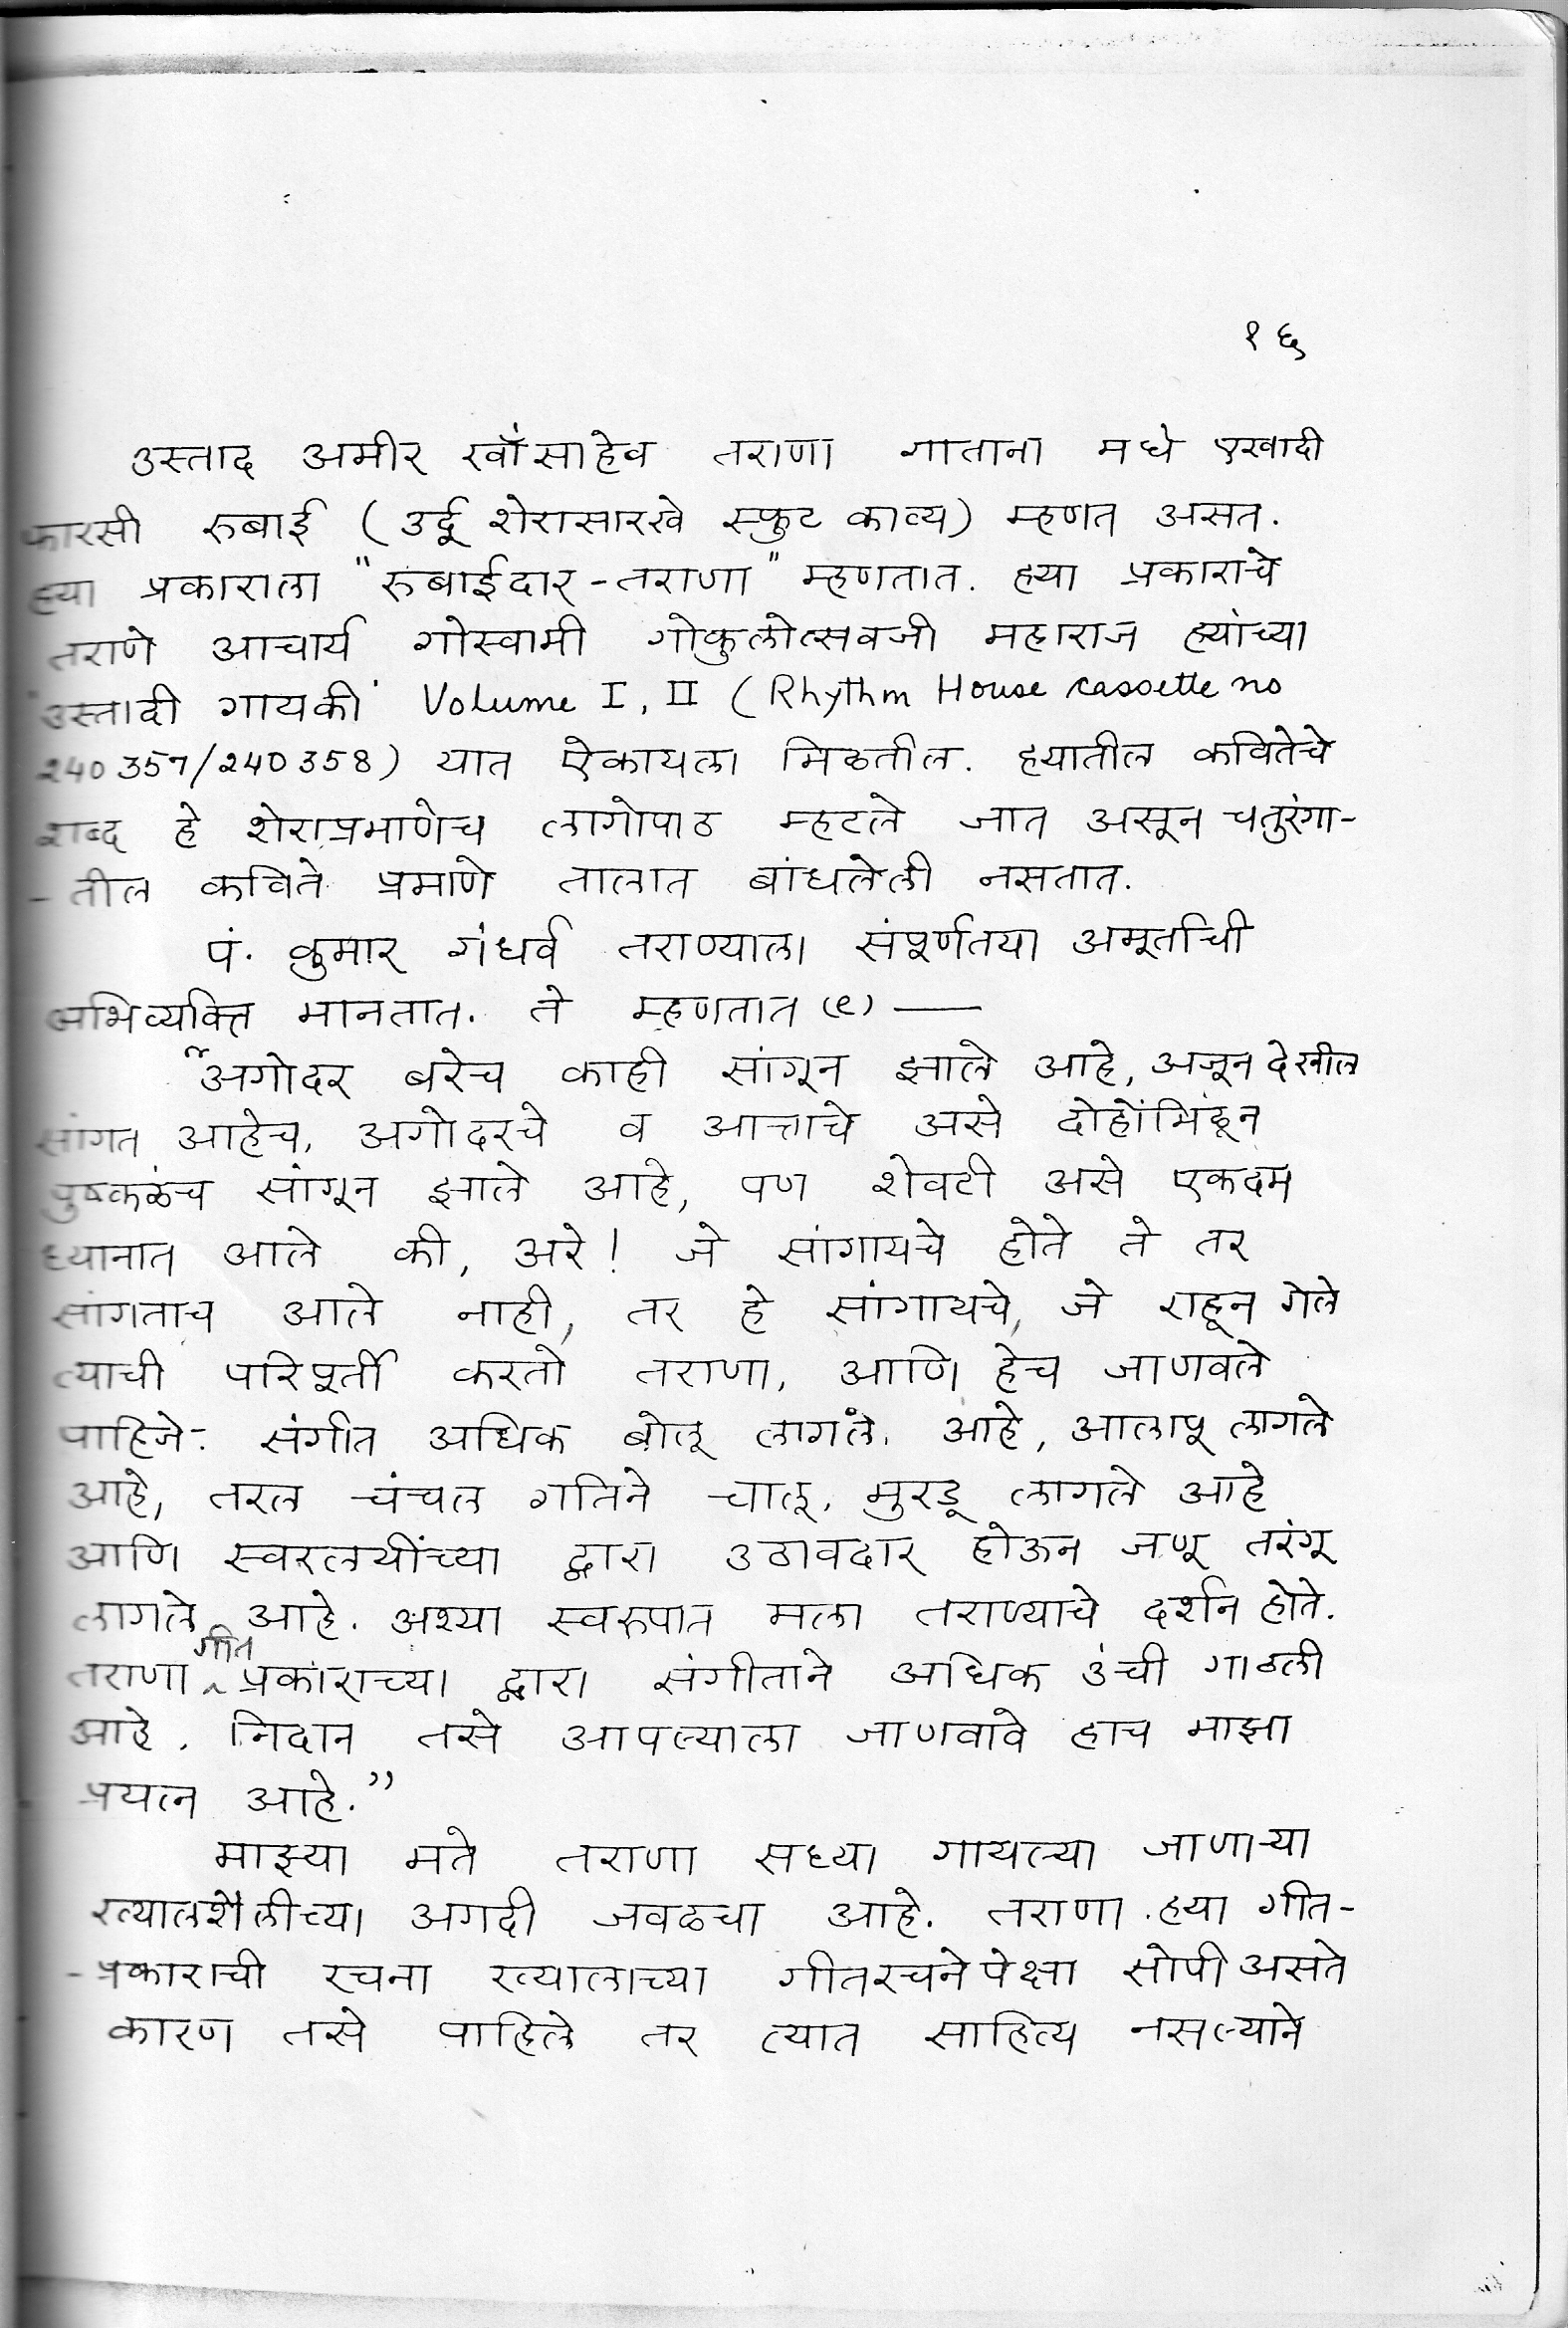 १६
उस्ताद अमीर खाँसाहेब तराणा गाताना मधे एखादी
फारसी रुबाई (उर्दू शेरासारखे स्फुट काव्य) म्हणत असत.
ह्या प्रकाराला "रुबाईदार-तराणा" म्हणतात. ह्या प्रकाराचे
तराणे आचार्य गोस्वामी गोकुलोत्सवजी महाराज ह्यांच्या
"उस्तादी गायकी" Volume I, II (Rhythm House cassette no
240357/240358) यात ऐकायला मिळतील. ह्यातील कवितेचे
शब्द हे शेराप्रमाणेच लागोपाठ म्हटले जात असून चतुरंगा-
-तील कविते प्रमाणे तालात बांधलेली नसतात.
पं. कुमार गंधर्व तराण्याला संपूर्णतया अमूर्ताची
अभिव्यक्ति मानतात. ते म्हणतात (९) —
"अगोदर बरेच काही सांगून झाले आहे, अजून देखील
सांगत आहेच, अगोदरचे व आत्ताचे असे दोहोंमिळून
पुष्कळंच सांगून झाले आहे, पण शेवटी असे एकदम
ध्यानात आले की, अरे! जे सांगायचे होते ते तर
सांगताच आले नाही, तर हे सांगायचे, जे राहून गेले
त्याची परिपूर्ती करतो तराणा, आणि हेच जाणवले
पाहिजे. संगीत अधिक बोलू लागले आहे, आलापू लागले
आहे, तरल चंचल गतिने चालू, मुरडू लागले आहे
आणि स्वरलयींच्या द्वारा उठावदार होऊन जणू तरंगू
लागले आहे. अश्या स्वरुपात मला तराण्याचे दर्शन होते.
तराणा गीत प्रकाराच्या द्वारा संगीताने अधिक उंची गाठली
आहे, निदान तसे आपल्याला जाणवावे हाच माझा
प्रयत्न आहे."
माझ्या मते तराणा सध्या गायल्या जाणाऱ्या
ख्यालशैलीच्या अगदी जवळचा आहे. तराणा ह्या गीत-
-प्रकाराची रचना ख्यालाच्या गीतरचनेपेक्षा सोपी असते
कारण तसे पाहिले तर त्यात साहित्य नसल्याने